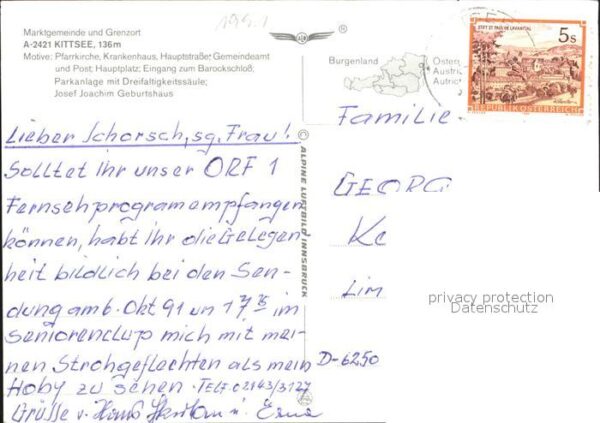 Marktgemeinde und Grenzort
A-2421 KITTSEE, 136m
Motive: Pfarrkirche, Krankenhaus, Hauptstraße, Gemeindeamt
und Post; Hauptplatz; Eingang zum Barockschloß;
Parkanlage mit Dreifaltigkeitssäule;
Josef Joachim Geburtshaus
Lieber Schorsch, sg. Frau!
Solltet ihr unser ORF 1
Fernsehprogramm empfangen
können, habt ihr die Gelegen-
heit bildlich bei den Sen-
dung am 6. Okt 91 un 17 15 im
Seniorenclup mich mit mei-
nen Strohgeflechten als mein
Hoby zu sehen. TELF. 02143/3127
Grüsse v. Hans u. Erna
© ALPINE LUFTBILD INNSBRUCK
Burgenland
Österr
Austri
Autric
5s
STIFT ST. PAUL IM LAVANTTAL
REPUBLIK ÖSTERREICH
Familie
GEORG
Ke
Lim
D-6250
privacy protection
Datenschutz